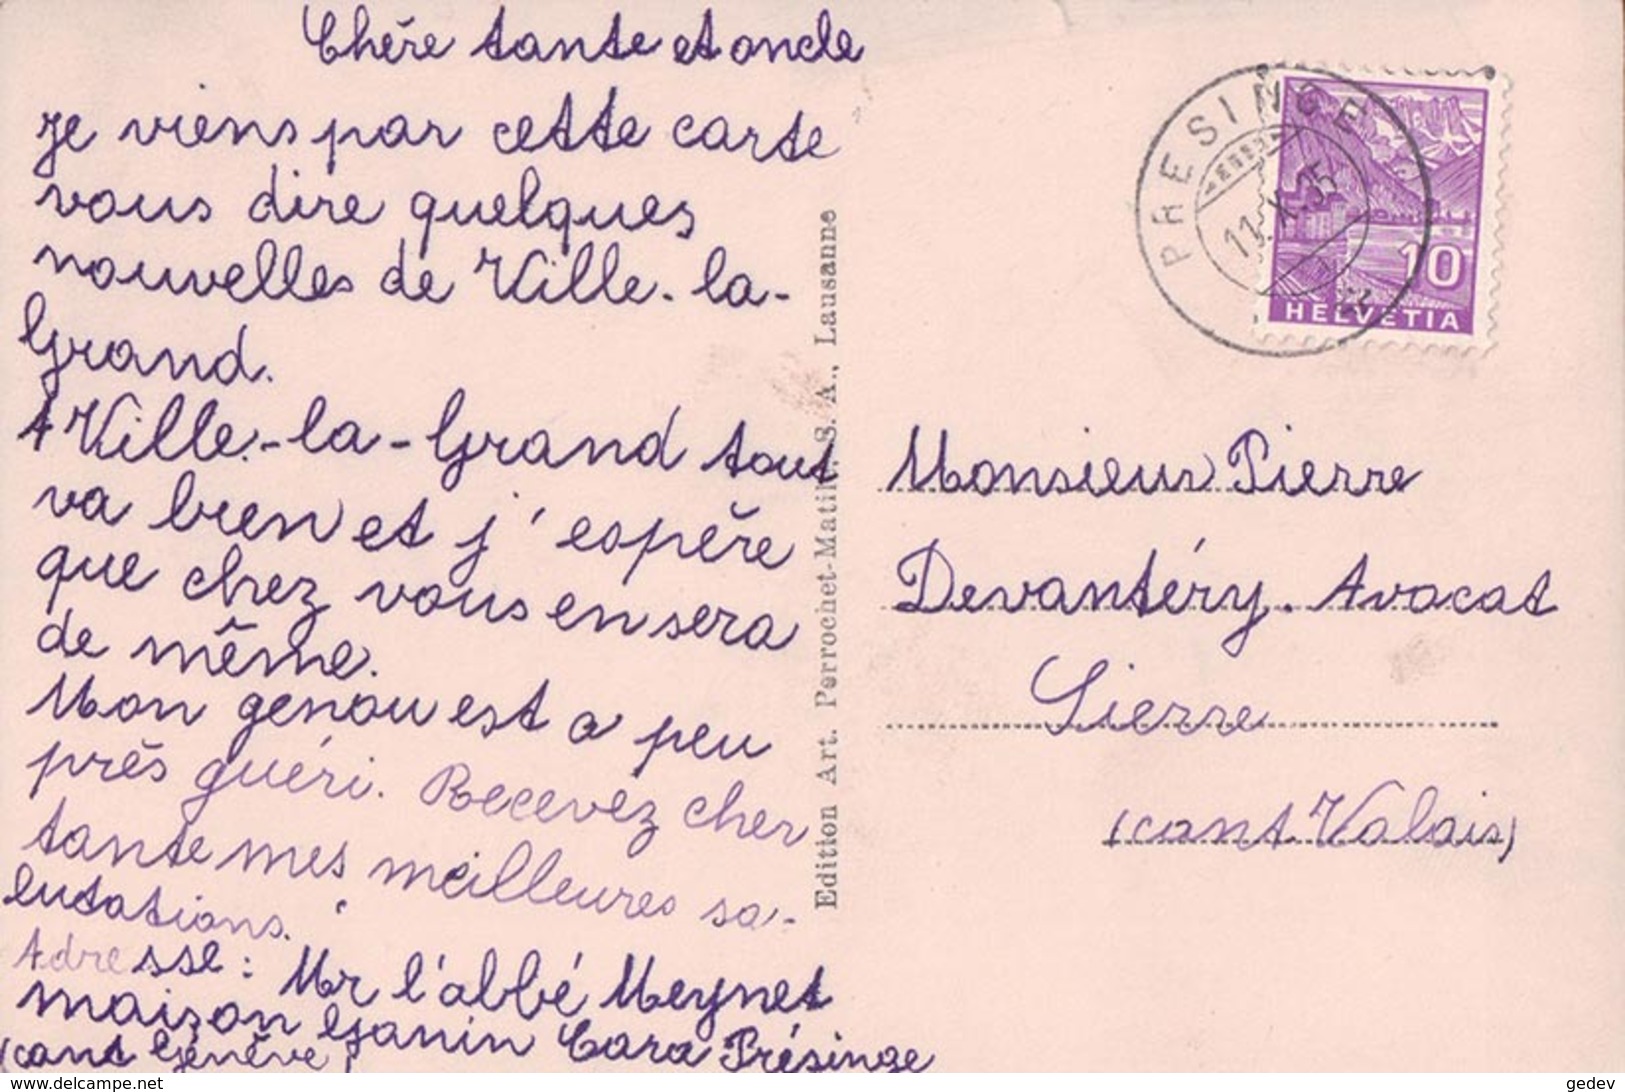 Chère tante et oncle
je viens par cette carte
vous dire quelques
nouvelles de Ville-la-
Grand.
A Ville-la-Grand tout
va bien et j'espère
que chez vous en sera
de même.
Mon genou est a peu
près guéri. Recevez cher
tante mes meilleures sa-
lutations.
Adresse: Mr l'abbé Meynet
maison Ganin Cara Présinge
(cant Genève)
Edition Art. Perrochet-Matile, S. A., Lausanne
PRESINGE
11.X.35
10
HELVETIA
Monsieur Pierre
Devantéry. Avocat
Sierre
(cant. Valais)
www.delcampe.net
gedev